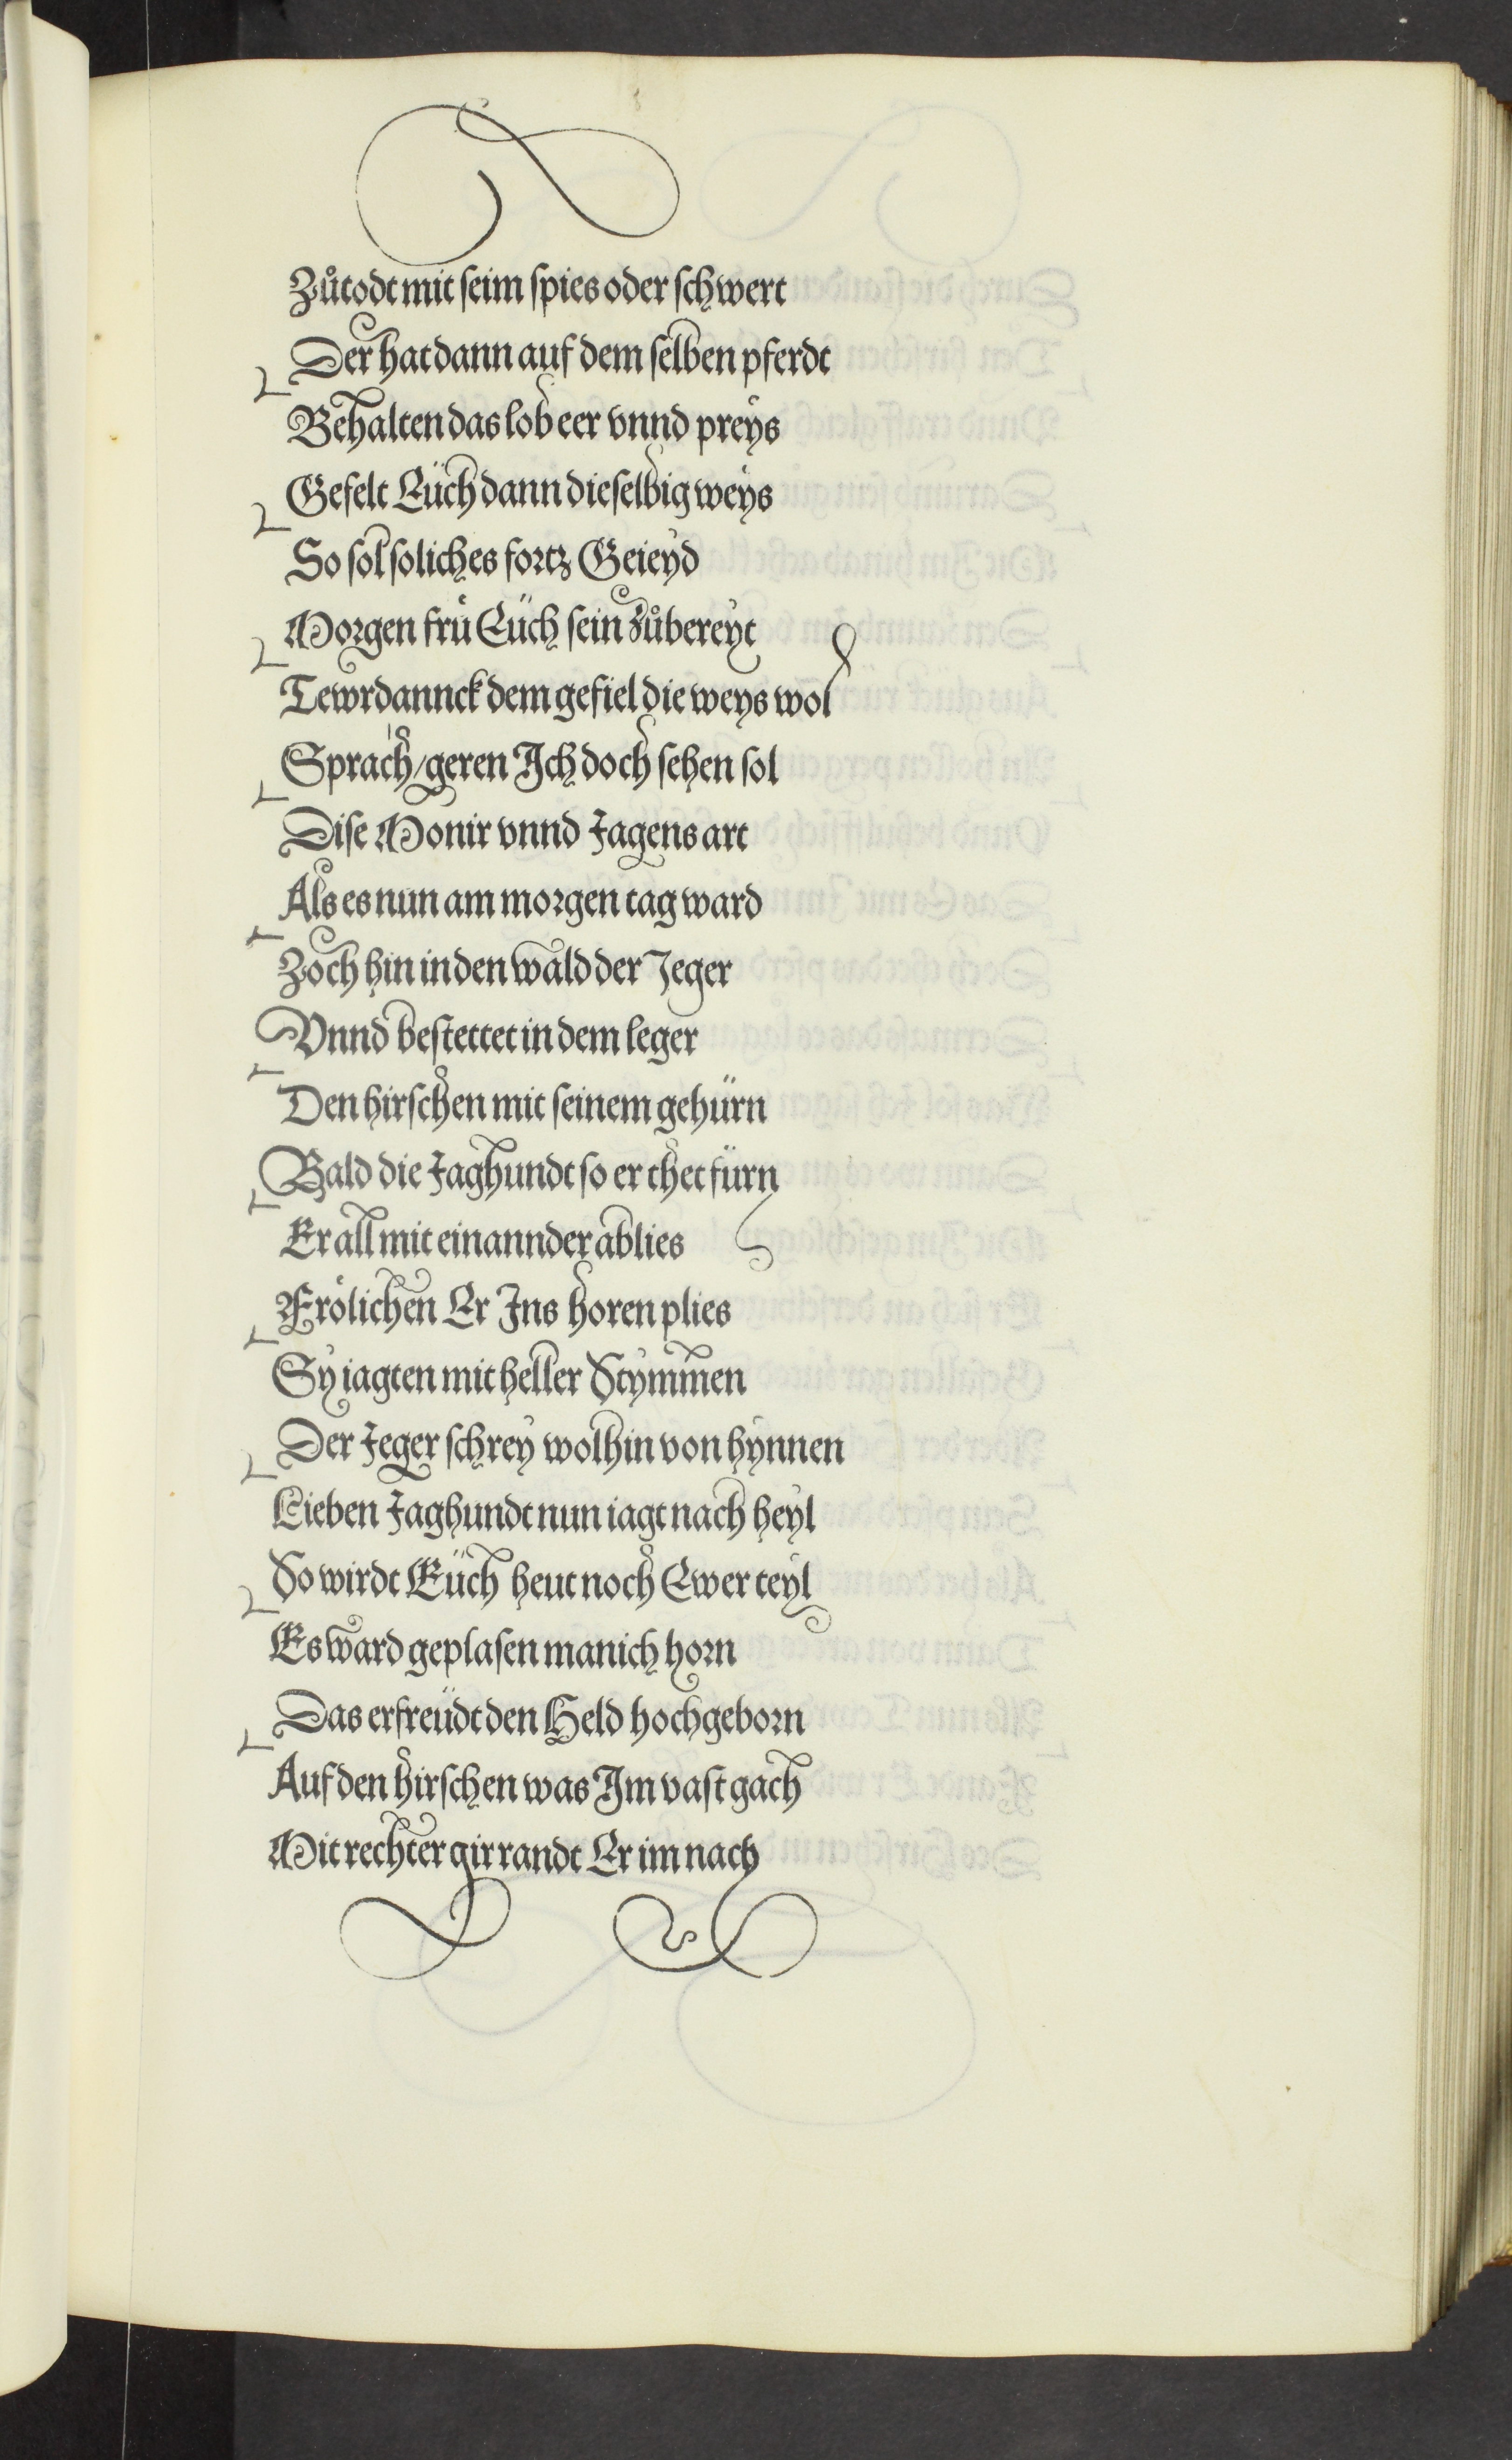 Zůtodt mit seim spies oder schwert
Der hat dann auf dem selben pferdt
Behalten das lob eer vnnd preys
Gefelt Eüch dann dieselbig weys
So sol soliches fortz Geieyd
Morgen frü Eüch sein zůbereyt
Tewrdannck dem gefiel die weys wol
Sprach/geren Ich doch sehen sol
Dise Monir vnnd Jagens art
Als es nun am morgen tag ward
Zoch hin in den wald der Jeger
Vnnd bestettet in dem leger
Den hirschen mit seinem gehürn
Bald die Jaghundt so er thet fürn
Er all mit einannder ablies
Frölichen Er Ins horen plies
Sy iagten mit heller Stymmen
Der Jeger schrey wolhin von hynnen
Lieben Jaghundt nun iagt nach heyl
So wirdt Eüch heut noch Ewer teyl
Es ward geplasen manich horn
Das erfreüdt den Held hochgeborn
Auf den hirschen was Im vast gach
Mit rechter gir randt Er im nach